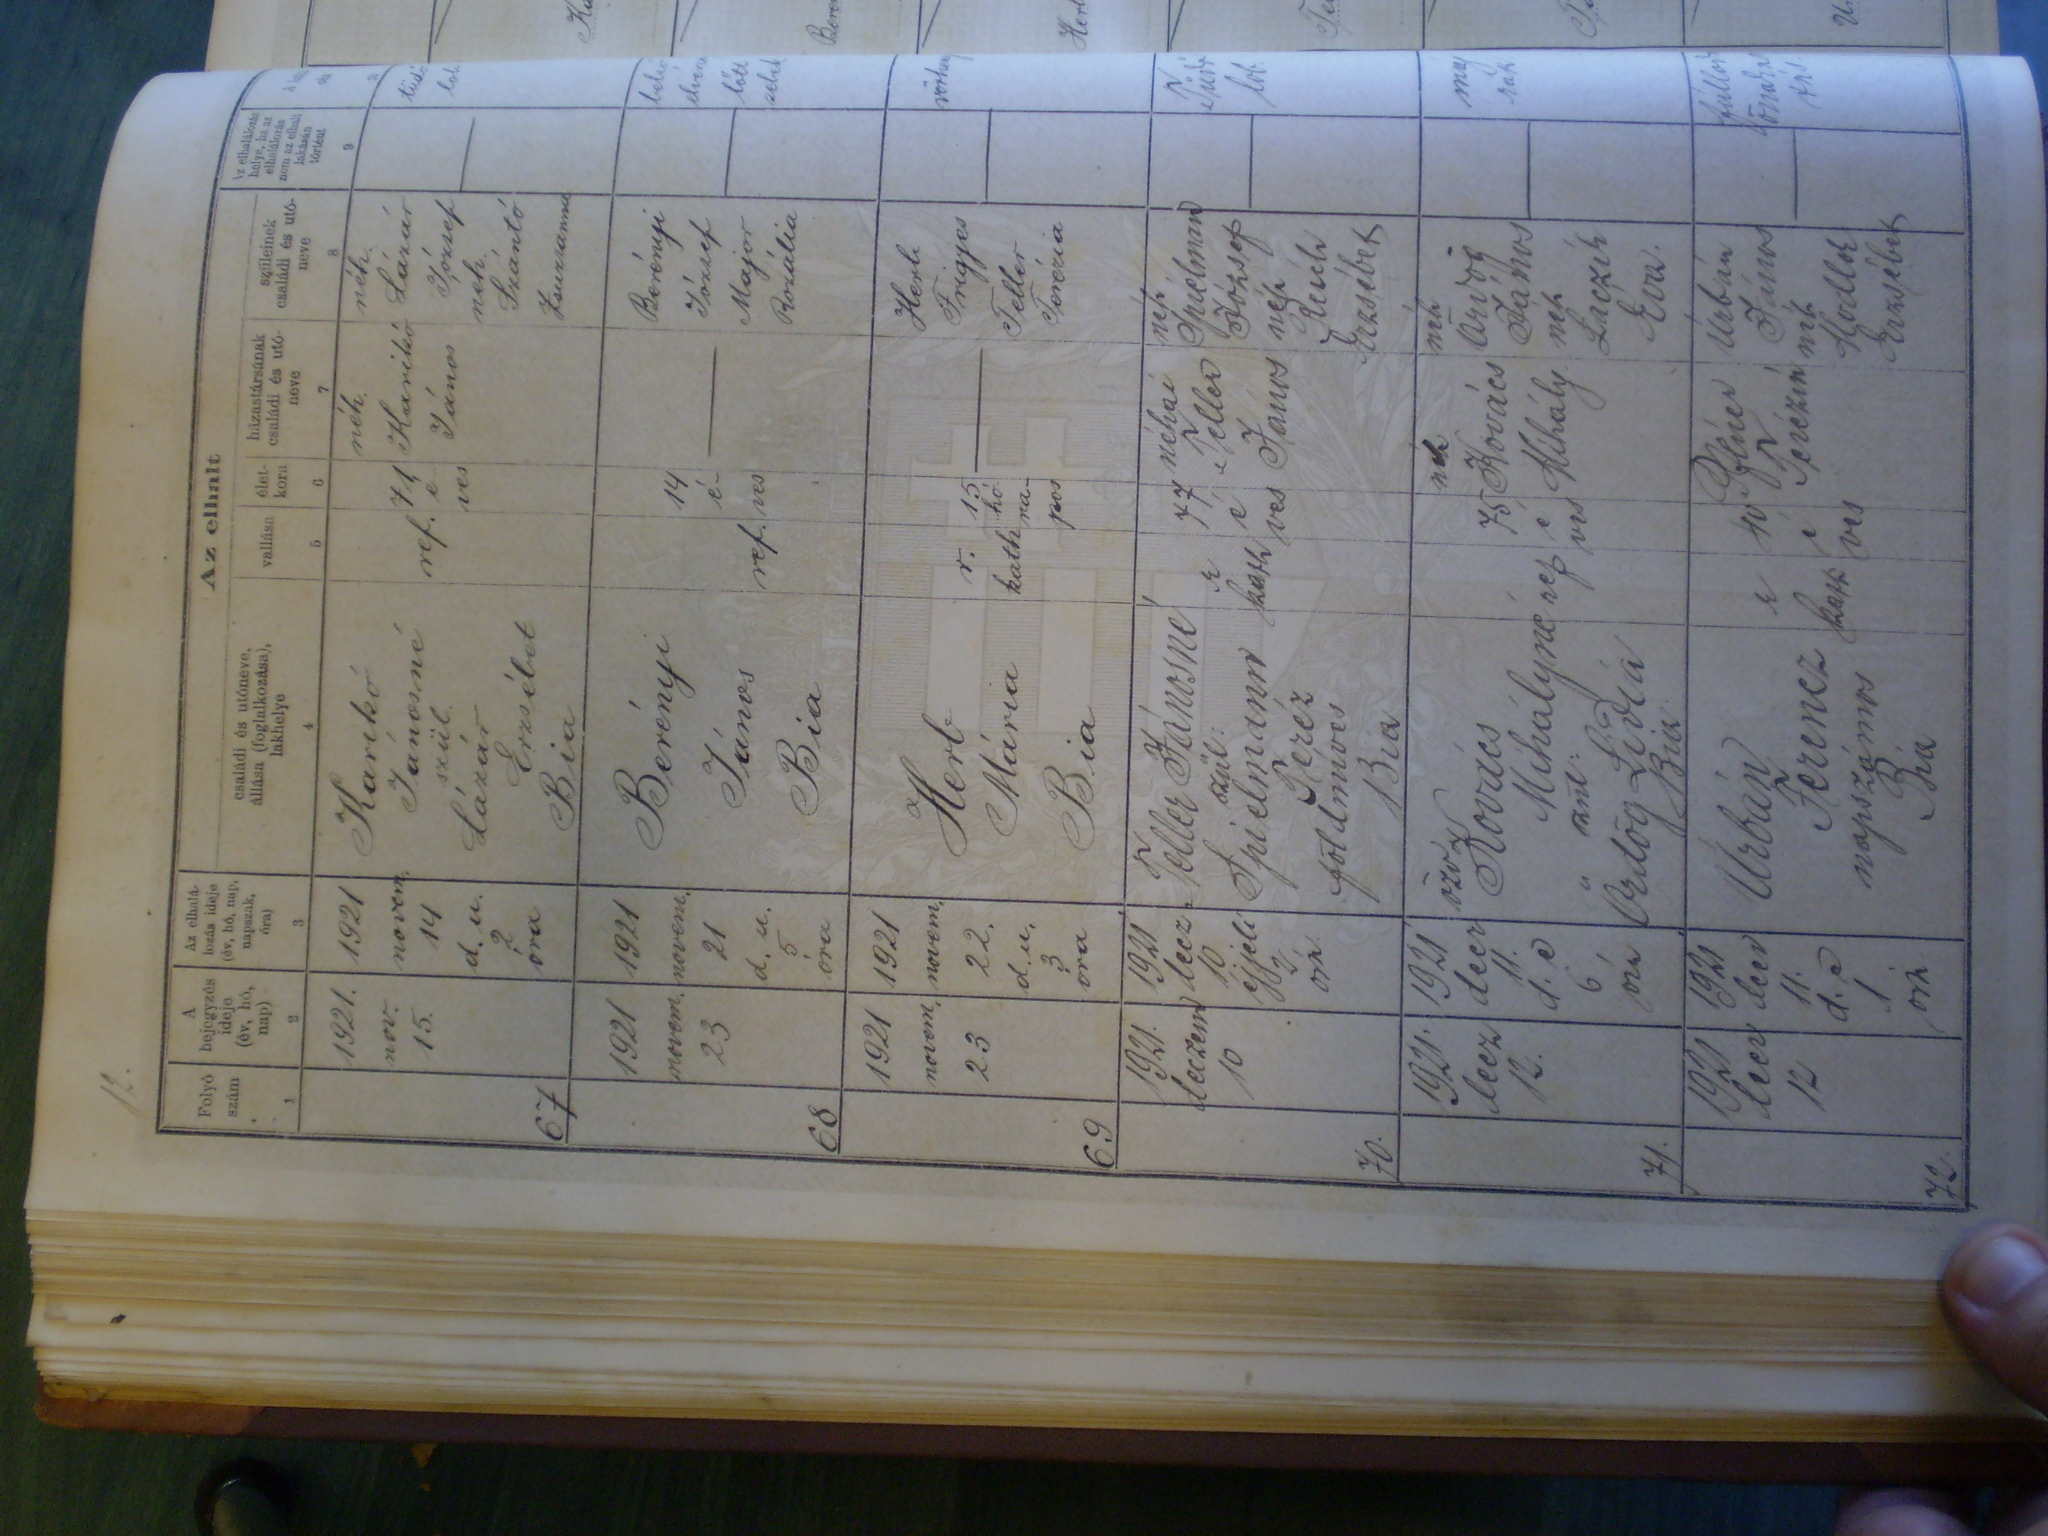 12.
Az elhalt
Folyó szám
A bejegyzés ideje (év, hó, nap)
Az elhalálozás ideje (év, hó, nap, napszak, óra)
családi és utóneve, állása (foglalkozása), lakhelye
vallása
életkora
házastársának családi és utóneve
szüleinek családi és utóneve
Az elhalálozás helye, ha az elhalálozás nem az elhalt lakásán történt
1
2
3
4
5
6
7
8
9
67
1921.
nov.
15.
1921
novem.
14
d. u.
2
óra
Karikó
Jánosné
szül.
Lázár
Erzsébet
Bia
ref.
71
é-
ves
néh.
Karikó
János
néh.
Lázár
József
néh.
Szántó
Zsuzsanna
68
1921
novem.
23
1921
novem.
21
d. u.
5
óra
Berényi
János
Bia
ref.
14
é-
ves
Berényi
József
Major
Rozália
69
1921
novem.
23
1921
novem.
22.
d. u.
3
óra
Herb
Mária
Bia
r.
kath
15
hó
na-
pos
Herb
Frigyes
Feller
Terézia
70.
1921.
deczem
10
1921
decz.
10.
éjjeli
2
óra
Feller Jánosné
szül:
Spielmann
Teréz
földmives
Bia
r
kath
77
é
ves
néhai
Feller
János
néh
Spielman
József
néh
Erzsébet
71.
1921.
decz
12.
1921
decz
11.
d. e
6
óra
özv
Kovács
Mihályné
szül:
Ördög Lidia
Bia
ref
75
é
ves
néh
Kovács
Mihály
néh
Ördög
János
néh
Laczik
Éva.
72.
1921
decz
12
1921
decz
11.
d. e
1
óra
Urbán
Ferencz
napszámos
Bia
r
kath
é
ves
Terézia
Urbán
János
néh
Erzsébet